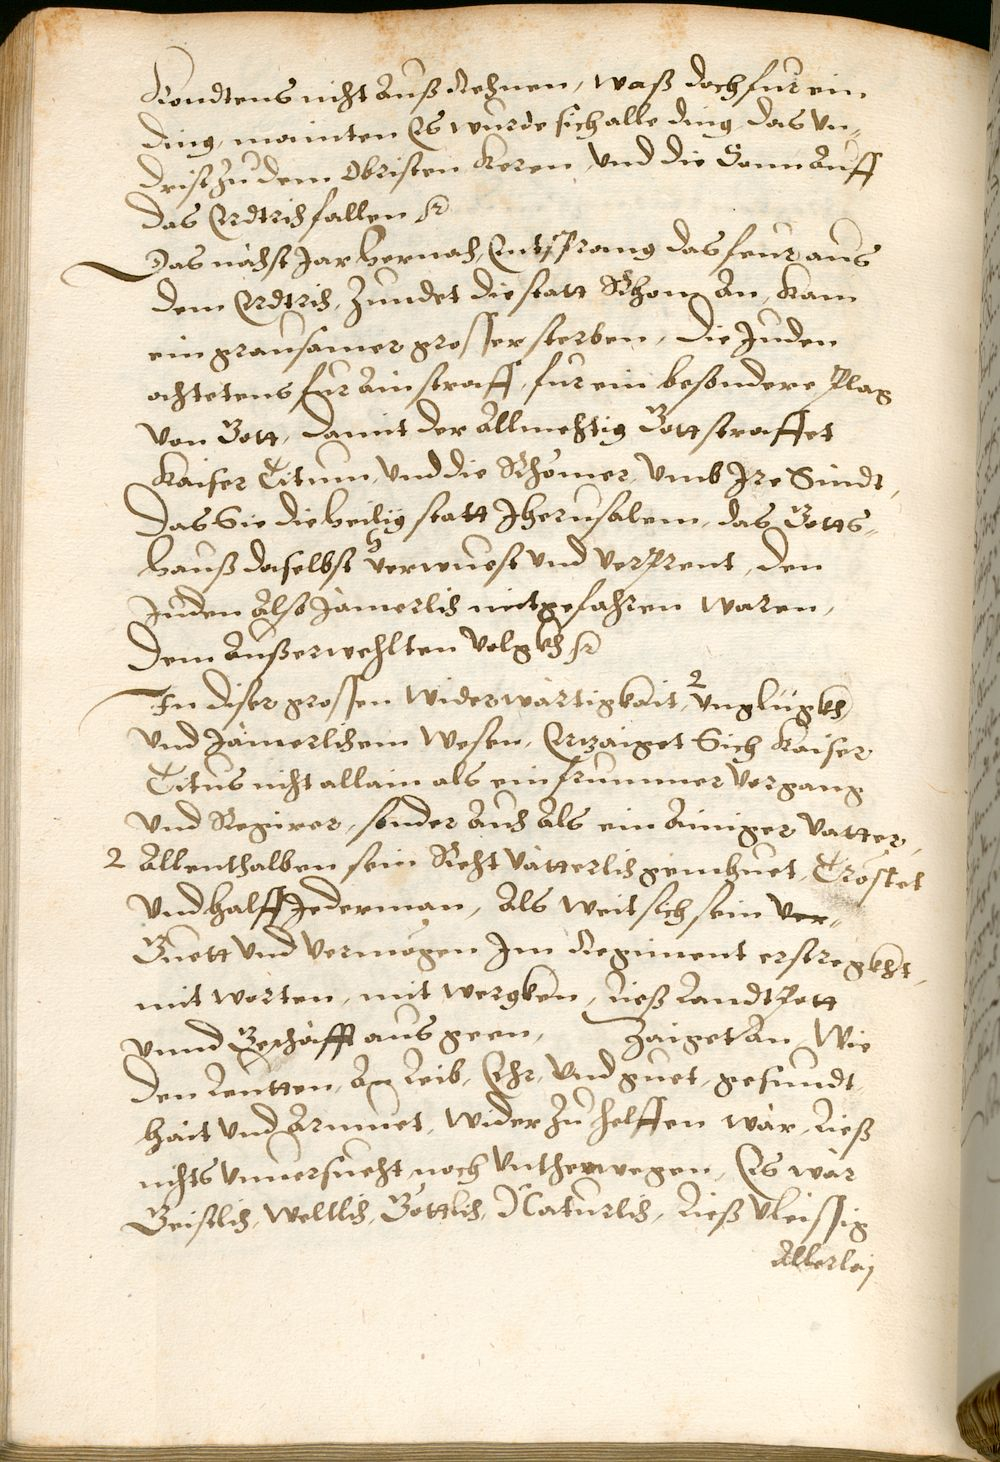 Kondtens nicht Außrechnen, waß doch fur ein
ding, mainten Es wurde sich alle ding das Un-
drist zu dem Obristen keren, und die Sonn Auff
das Erdtrich fallen &c
Das nächst Jar hernach, Entsprang das feur aus
dem Erdtrich, Zundet die statt Rhom an, kam
ein grausamer grosser sterben, die Juden
achtetens fur ain straff, fur ein besondere Plag
von Gott, damit der Allmechtig Gott straffet
Kaiser Titum, und die Rhömer, umb Ire Sindt,
Das Sie die heilig statt Jherusalem, das Gotts-
hauß daselbst verwuest und verprent, den
Juden Also Jämerlich mitgefahren waren,
dem Außerwehlten volgkh &c
In diser grossen widerwärtigkait, 2 Unglügkh
und Jämerlichem wesen, Erzaiget Sich Kaiser
Titus nicht allain als ein frummer vorgang
und Regirer, sonder Auch Als ein Ainiger Vatter,
2 Allenthalben sein Recht vätterlich gemhuet, Tröstet
und halff Jederman, Als weit sich sein ver-
Guett und vermögen Im Regiment erstregkht,
mit worten, mit wergken, ließ Landtpott
unnd Geschäfft aus geen, Zaiget An, Wie
den Leutten, An Leib, Ehr, und guet, gesundt
hait und Armuet, wider zu helffen wär, ließ
nichts unnersucht noch untherwegen, Es wär
Geistlich, weltlich, Göttlich, Naturlich, ließ vleissig
Allerlej